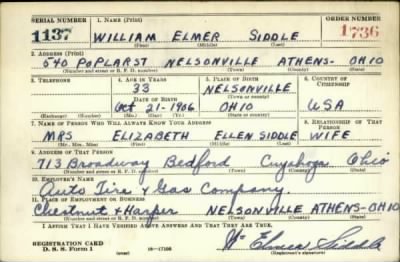 SERIAL NUMBER 1. NAME (Print) ORDER NUMBER
1137 WILLIAM ELMER SIDDLE 1736
(First) (Middle) (Last)
2. ADDRESS (Print)
540 POPLAR ST NELSONVILLE ATHENS- OHIO
(Number and street or R. F. D. number) (Town) (County) (State)
3. TELEPHONE 4. AGE IN YEARS 5. PLACE OF BIRTH 6. COUNTRY OF CITIZENSHIP
33 NELSONVILLE
DATE OF BIRTH (Town or county)
Oct 21-1906 OHIO USA
(Exchange) (Number) (Mo.) (Day) (Yr.) (State or country)
7. NAME OF PERSON WHO WILL ALWAYS KNOW YOUR ADDRESS 8. RELATIONSHIP OF THAT PERSON
MRS ELIZABETH ELLEN SIDDLE WIFE
(Mr., Mrs., Miss) (First) (Middle) (Last)
9. ADDRESS OF THAT PERSON
713 Broadway Bedford Cuyahoga Ohio
(Number and street or R. F. D. number) (Town) (County) (State)
10. EMPLOYER'S NAME
Auto Tire & Gas Company.
11. PLACE OF EMPLOYMENT OR BUSINESS
Chestnut & Harper NELSONVILLE ATHENS-OHIO
(Number and street or R. F. D. number) (Town) (County) (State)
I AFFIRM THAT I HAVE VERIFIED ABOVE ANSWERS AND THAT THEY ARE TRUE.
REGISTRATION CARD
D. S. S. Form 1 16-17105 Wm Elmer Siddle
(Registrant's signature)